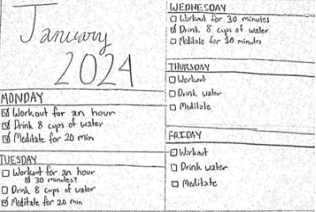 January
2024
MONDAY
☑ Workout for an hour
☑ Drink 8 cups of water
☑ Meditate for 20 min
TUESDAY
☐ Workout for an hour
☑ 30 minutes?
☐ Drink 8 cups of water
☑ Meditate for 20 min
WEDNESDAY
☐ Workout for 30 minutes
☑ Drink 8 cups of water
☐ Meditate for 10 minutes
THURSDAY
☐ Workout
☐ Drink water
☐ Meditate
FRIDAY
☐ Workout
☐ Drink water
☐ Meditate